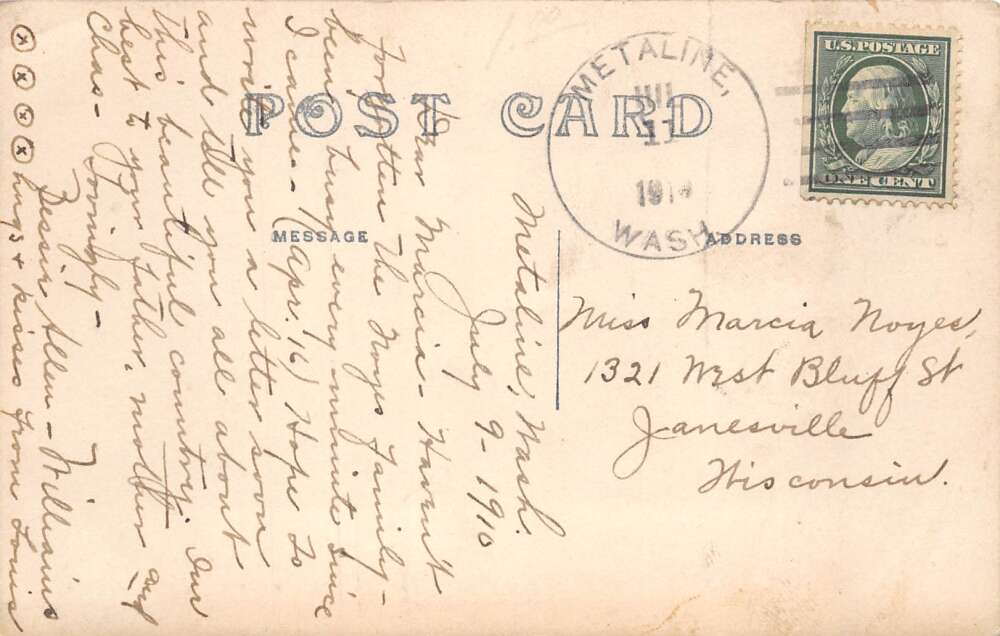 POST CARD
MESSAGE
ADDRESS
U.S. POSTAGE
ONE CENT
METALINE,
JUL
11
1910
WASH.
Metaline, Wash.
July 9-1910
Dear Marcia - Haven't
forgotten the Noyes family -
been busy every minute since
I came - (Apr. 16) Hope to
write you a letter soon
and tell you all about
this beautiful country. Our
best to your father, mother and
Chas - Lovingly -
Bessie Allen - Williams
ⓧ ⓧ ⓧ ⓧ hugs & kisses from Louis
Miss Marcia Noyes,
1321 West Bluff St
Janesville
Wisconsin.